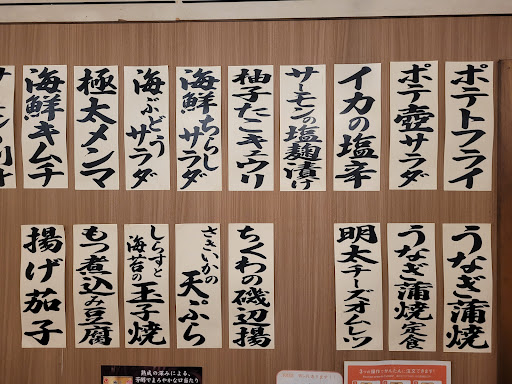 ポテトフライ
ポテ壺サラダ
イカの塩辛
サーモンの塩麹漬け
柚子たこキュウリ
海鮮ちらしサラダ
海ぶどうサラダ
極太メンマ
海鮮キムチ
うなぎ蒲焼
うなぎ蒲焼定食
明太チーズオムレツ
ちくわの磯辺揚
さきいかの天ぷら
しらすと海苔の玉子焼
もつ煮込み豆腐
揚げ茄子
熟成の深みによる、
芳醇でまろやかな口当たり